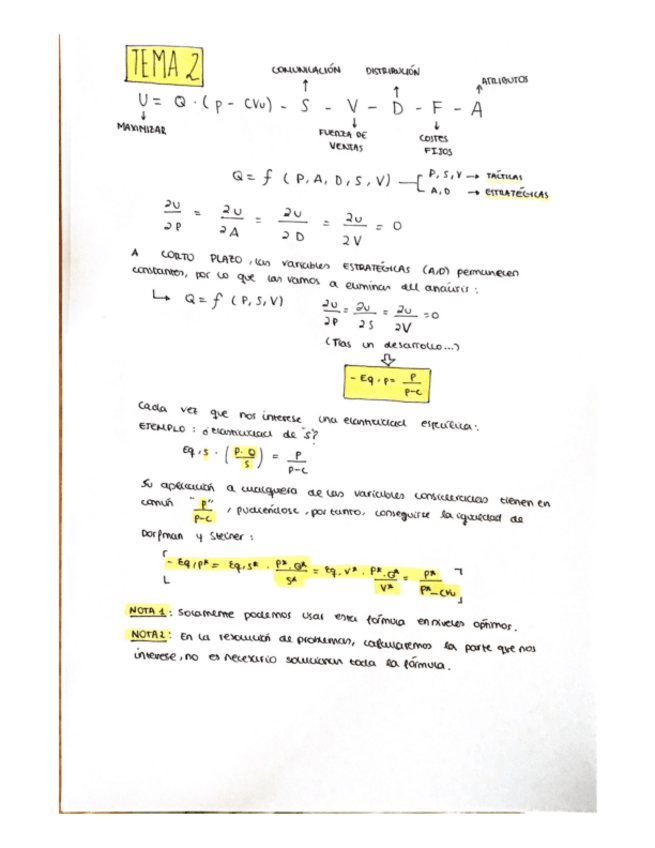 TEMA 2
COMUNICACIÓN DISTRIBUCIÓN ATRIBUTOS
U = Q · (p - CVu) - S - V - D - F - A
MAXIMIZAR FUERZA DE VENTAS COSTES FIJOS
Q = f (P, A, D, S, V) P, S, V → TÁCTICAS
A, D → ESTRATÉGICAS
∂U/∂P = ∂U/∂A = ∂U/∂D = ∂U/∂V = 0
A CORTO PLAZO, las variables ESTRATÉGICAS (A,D) permanecen
constantes, por lo que las vamos a eliminar del análisis:
↳ Q = f (P, S, V) ∂U/∂P = ∂U/∂S = ∂U/∂V = 0
(Tras un desarrollo...)
- Eq,p = P/P-C
Cada vez que nos interese una elasticidad específica:
EJEMPLO: ¿elasticidad de "s"?
Eq,s · (P·Q/S) = P/P-C
Su aplicación a cualquiera de las variables consideradas tienen en
común "P/P-C", pudiéndose, por tanto, conseguirse la igualdad de
Dorfman y Steiner:
[- Eq,p* = Eq,s* · P*·Q*/S* = Eq,v* · P*·Q*/V* = P*/P*-CVu]
NOTA 1: Solamente podemos usar esta fórmula en niveles óptimos.
NOTA 2: En la resolución de problemas, calcularemos la parte que nos
interese, no es necesario solucionar toda la fórmula.